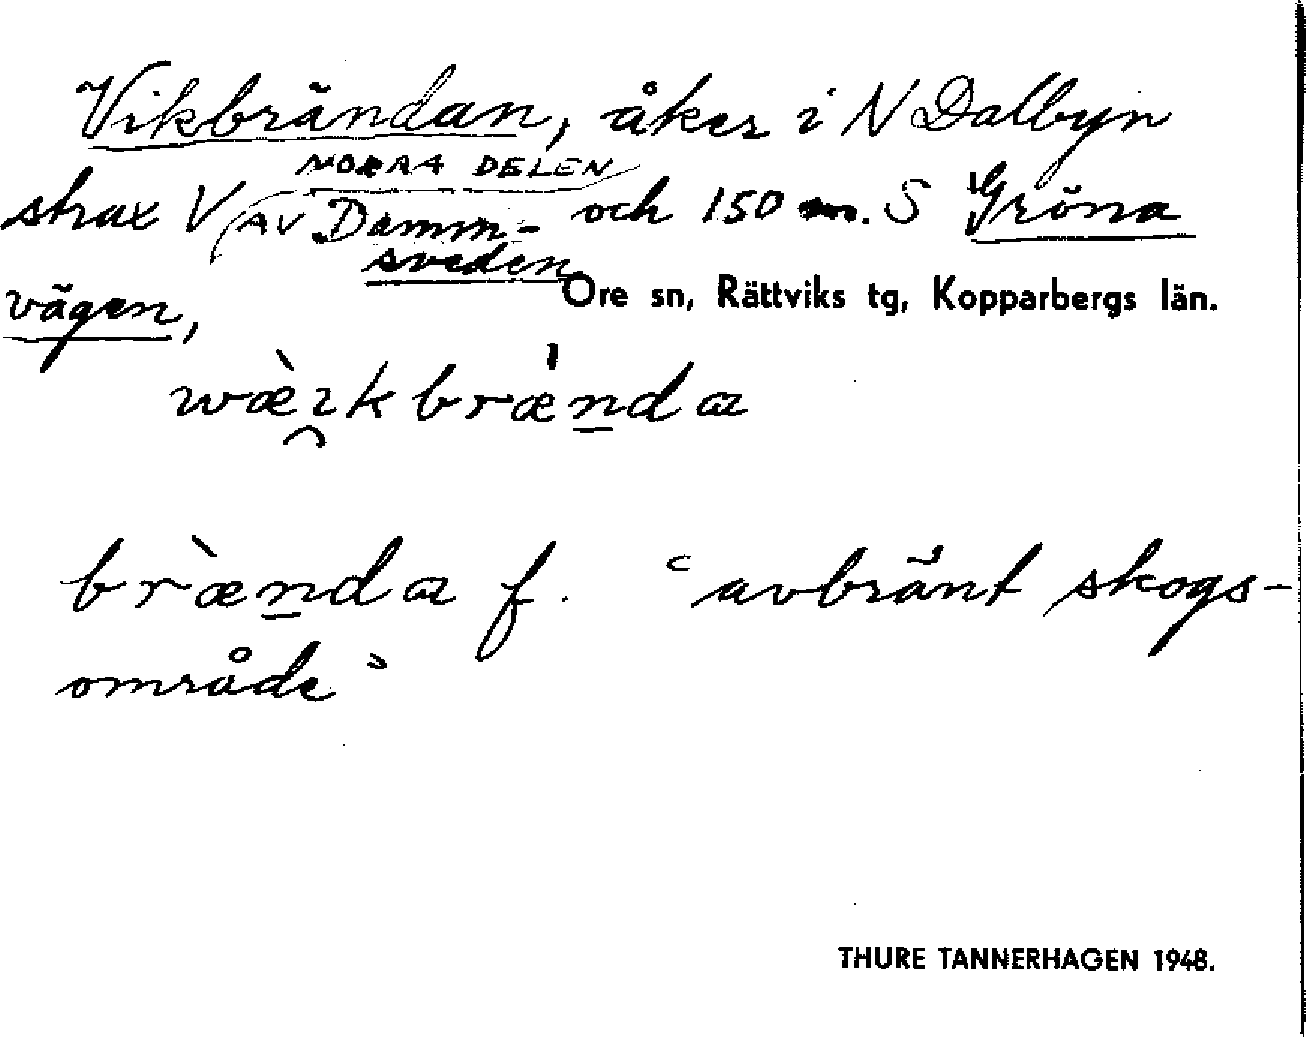 Vikbrändan, åker i N Dalbyn
strax V NORRA DELEN AV Damm- och 150 m. S Gröna
sveden
Ore sn, Rättviks tg, Kopparbergs län.
vägen,
wæ̀ı̯kbræ̍n̲da
bræ̀n̲da f. "avbränt skogs-
område"
THURE TANNERHAGEN 1948.